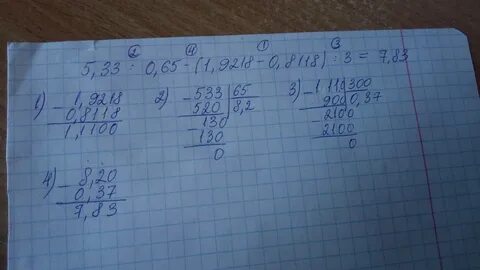 ② ④ ① ③
5,33 : 0,65 - (1,9218 - 0,8118) : 3 = 7,83
1) - 1,9218
0,8118
1,1100
2) - 533 | 65
520 | 8,2
- 130
130
0
3) - 1 110 | 300
900 | 0,37
- 2100
2100
0
4) - 8,20
0,37
7,83